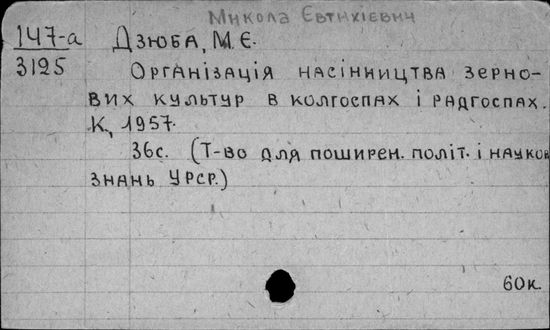 Микола Євтихієвич
147-а Дзюба, М.Є.
3125 Організація насінництва зерно-
вих культур в колгоспах і радгоспах.
К., 1957.
36с. (Т-во для поширен. політ. і науков
знань УРСР.)
60к.